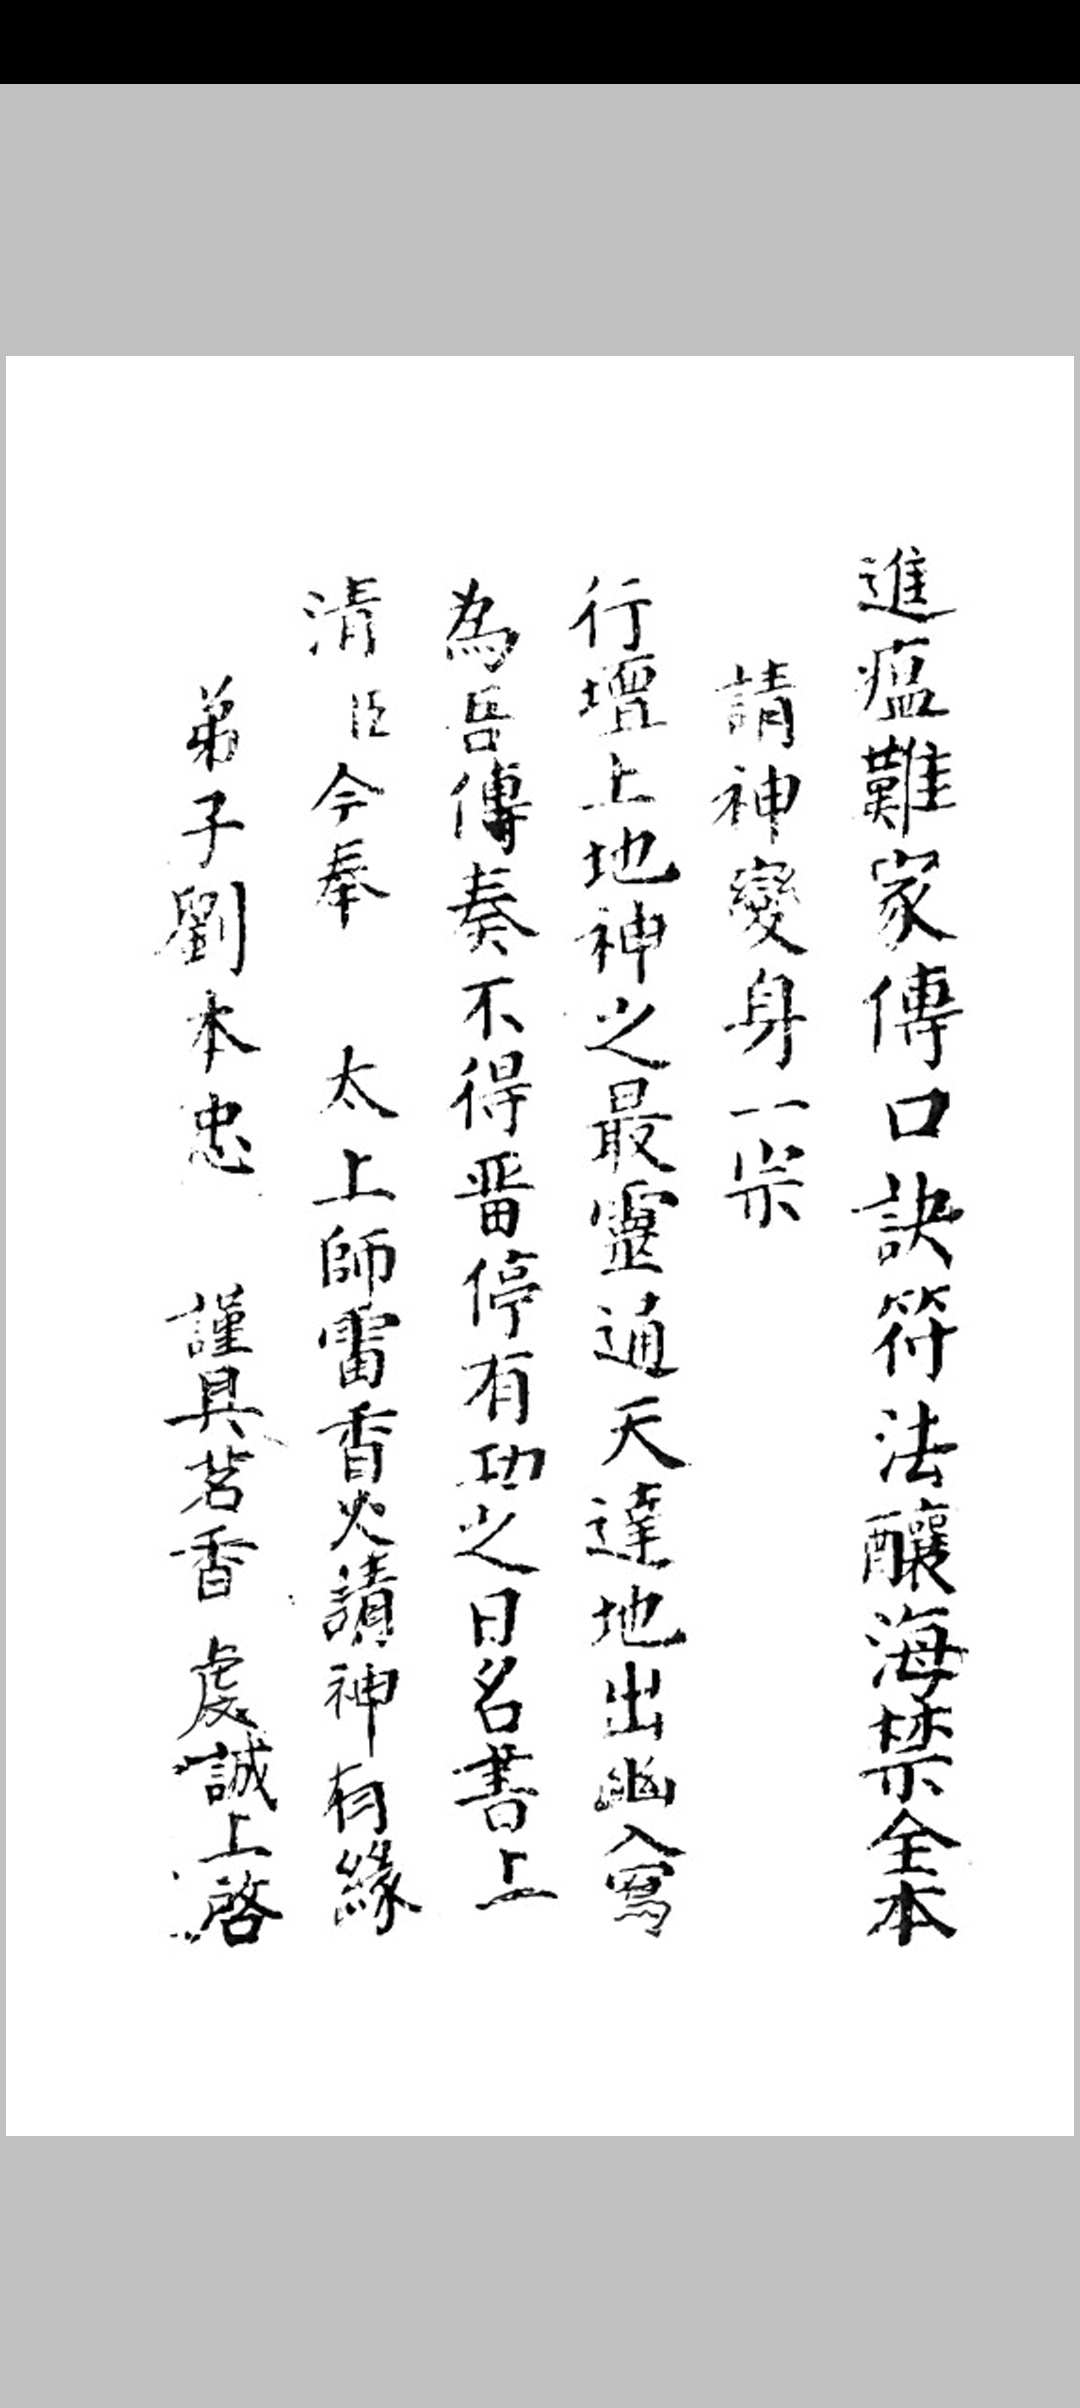 進瘟難家傳口訣符法釀海禁全本
請神變身一宗
行壇上地神之最靈通天達地出幽入冥
為吾傳奏不得畱停有功之日名書上
清臣今奉 太上師雷香火請神有緣
弟子劉本忠 謹具茗香 虔誠上啓